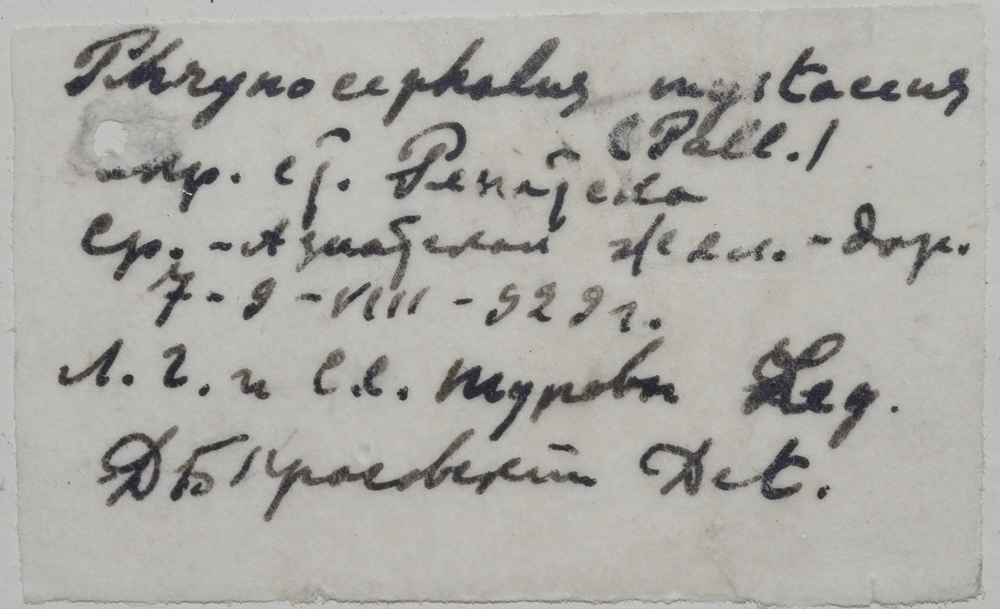 Phrynocephalus mystaceus
(Pall.)
окр. ст. Репетека
Ср.-Азиатской жел.-дор.
7-9-VIII-929г.
Л. Г. и С. С. Туровы Leg.
Д Б Красовский Det.